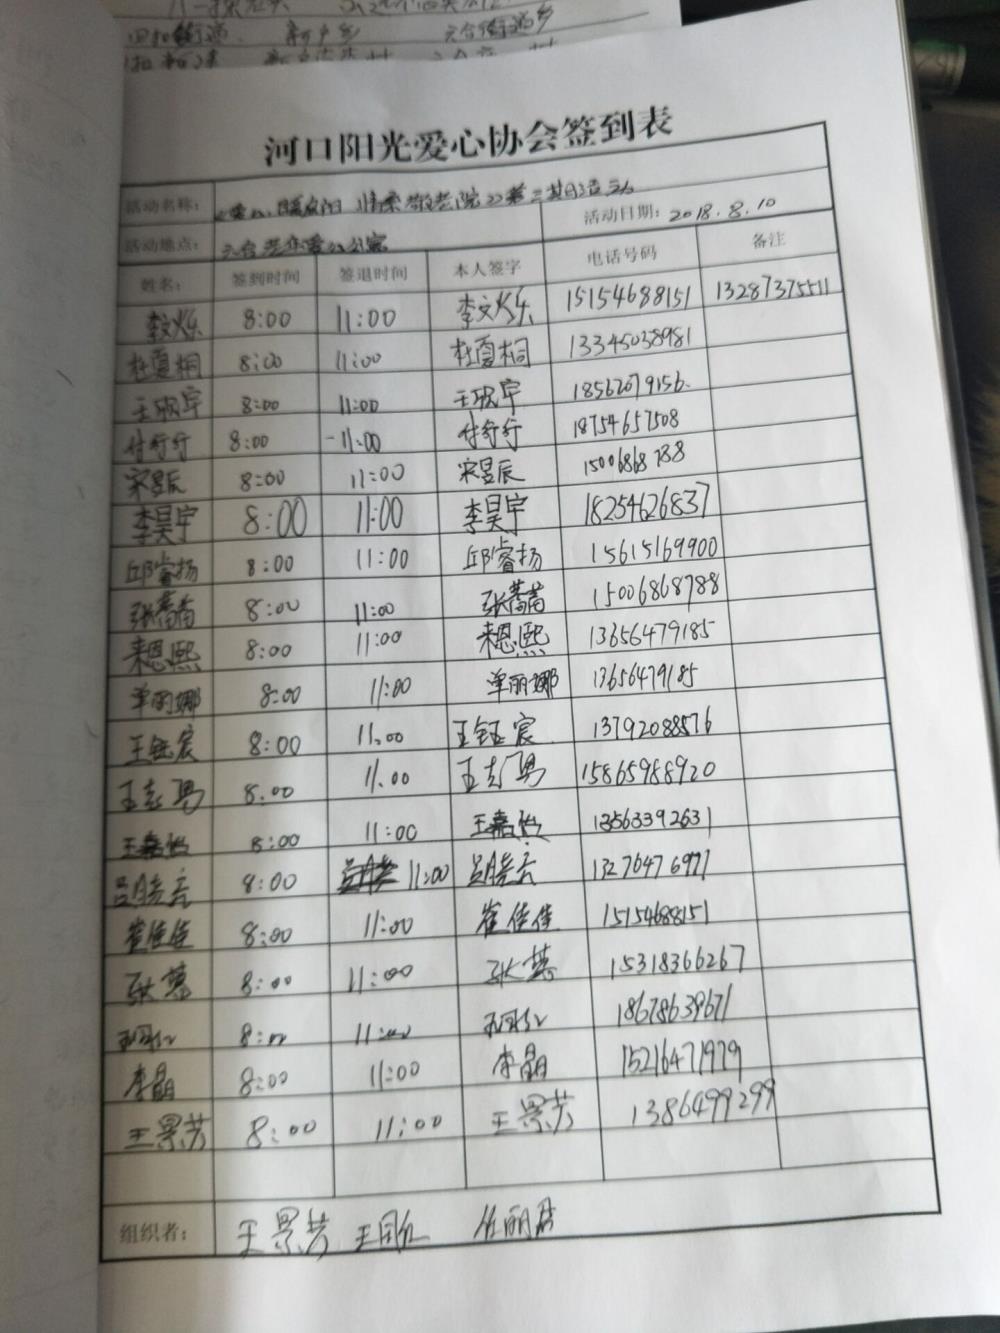 河口阳光爱心协会签到表
活动名称： 情系敬老院 第三期活动
活动日期： 2018.8.10
活动地点： 六合 老年公寓
姓名： 签到时间 签退时间 本人签字 电话号码 备注
李文烁 8:00 11:00 李文烁 15154688151 13287375511
杜夏桐 8:00 11:00 杜夏桐 13345038981
王淑宇 8:00 11:00 王淑宇 18562079156
付行行 8:00 11:00 付行行 18754657508
宋昱辰 8:00 11:00 宋昱辰 15006868788
李昊宇 8:00 11:00 李昊宇 18254626837
邱睿扬 8:00 11:00 邱睿扬 15615169900
张蕾蕾 8:00 11:00 张蕾蕾 15006868788
来恩熙 8:00 11:00 来恩熙 13656479185
单丽娜 8:00 11:00 单丽娜 13656479185
王钰宸 8:00 11:00 王钰宸 13792088576
王志勇 8:00 11:00 王志勇 15865988920
王嘉怡 8:00 11:00 王嘉怡 13563392631
8:00 11:00 13276476977
崔佳佳 8:00 11:00 崔佳佳 15154688151
张慧 8:00 11:00 张慧 15318366267
8:00 11:00 18678639671
李晶 8:00 11:00 李晶 15216471979
王景芳 8:00 11:00 王景芳 1386499299
组织者： 王景芳 王同仁 任丽君